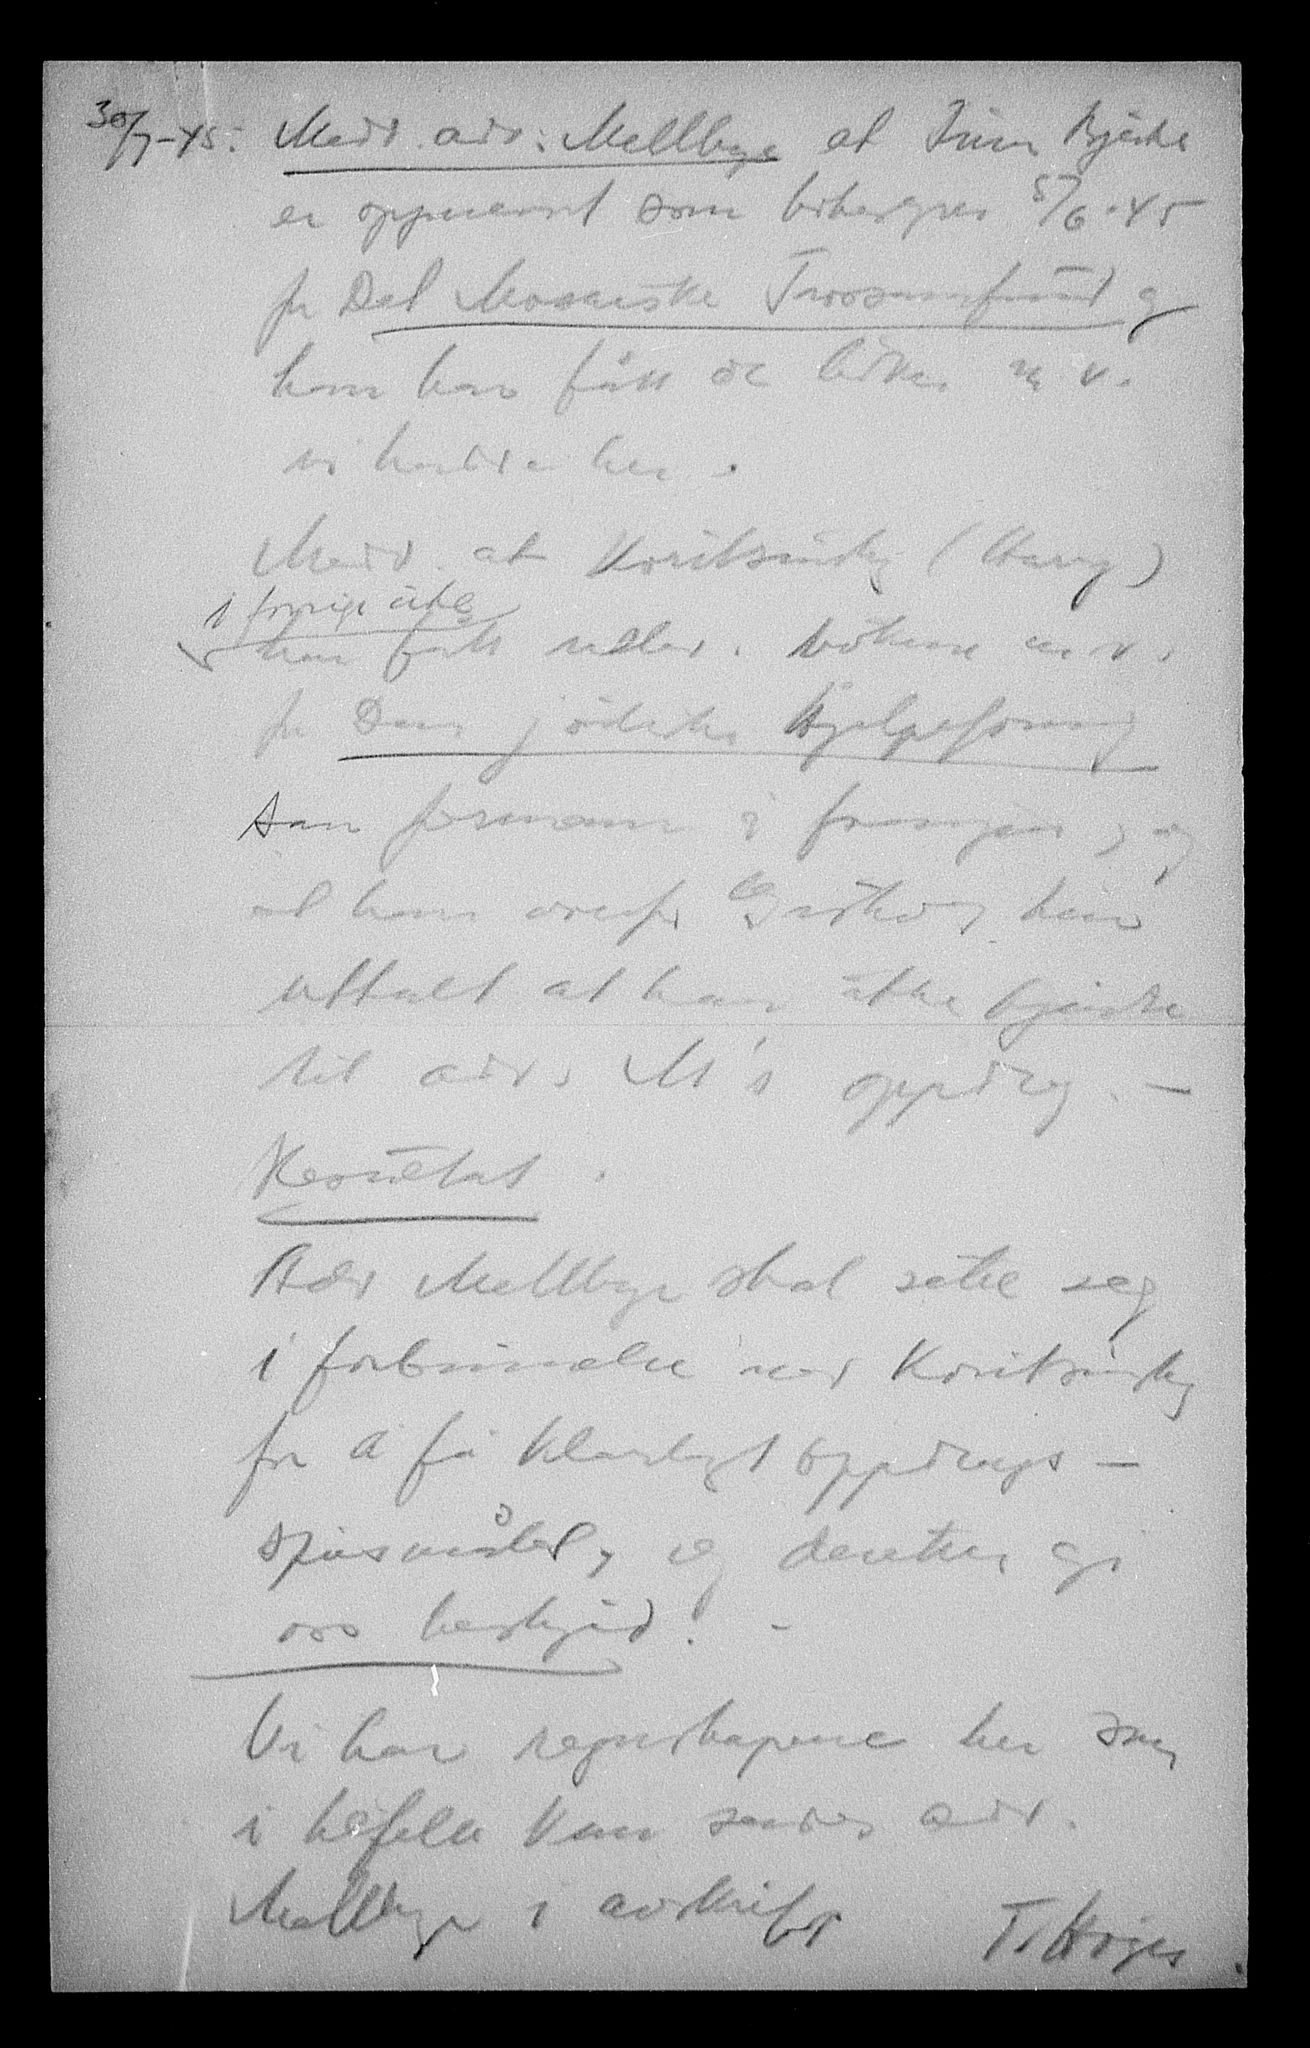 30/7-45: Medd. adv. Mellbye at
er oppnevnt som 5/6-45
for Det Mosaiske Trossamfund og
han har fått de bøker m.v.
vi hadde her.
Medd. at Koritzinsky (Harry)
i forrige uke
har fått utlev. bøkene m.v.
for Den jødiske Hjelpeforening
som formann i foreningen, og
at han overfor har
uttalt at han ikke kjente
til adv. M's oppdrag. —
Resultat.
Adv Mellbye skal sette seg
i forbindelse med Koritzinsky
for å få klarlagt oppdrags-
spørsmålet, og deretter gi
oss beskjed. -
Vi har regnskapene her som
i tilfelle kan sendes adv.
Mellbye i avskrift